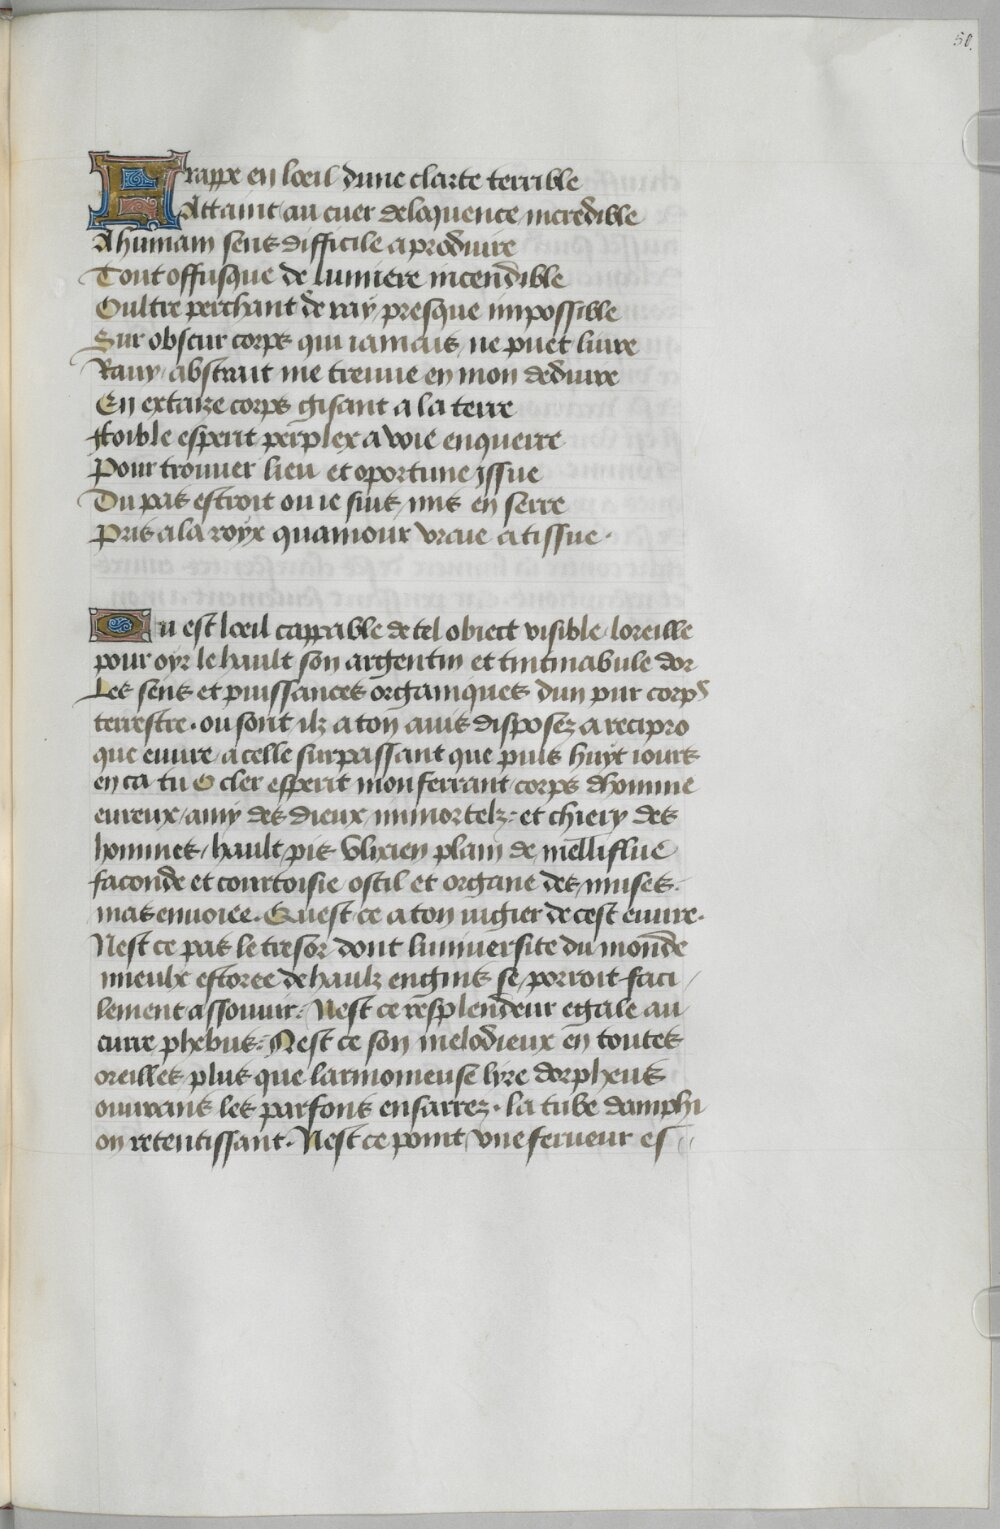 50.
Frappe en loeil dune clarte terrible
Attaint au cuer deloquence incredible
A humain sens difficile a produire
Tout offusque de lumiere incendible
Oultre perchant de ray presque impossible
Sur obscur corps qui iamais ne puet luire
Rauy abstrait me treuue en mon deduire
En extaize corps gisant a la terre
Foible esperit perplex a voie enquerre
Pour trouuer lieu et oportune yssue
Du pas estroit ou ie suis mis en serre
Pris a la royx quamour vraie a tissue.
Ou est loeil cappable de tel obiect visible / loreille
pour oyr le hault son argentin et tintinabule dor
Les sens et puissances organiques dun pur corps
terrestre. ou sont ilz a ton auis disposez a recipro
que euure / a celle surpassant que puis huyt iours
en ca tu o cler esperit monferrant / corps dhomme
eureux / amy des dieux immortelz: et chiery des
hommes / hault pis vlixien plain de melliflue
faconde et courtoisie ostil et organe des muses.
mas enuoiee. Quest ce a ton iugier de cest euure.
Nest ce pas le tresor dont luniuersite du monde
mieulx estoree de haulz engins se porroit faci
lement assouuir. Nest ce resplendeur egale au
curre phebus: Nest ce son melodieux en toutes
oreilles plus que larmonieuse lyre dorpheus
ouurans les parfons ensarrez. la tube damphi
on retentissant. Nest ce point vne ferueur es